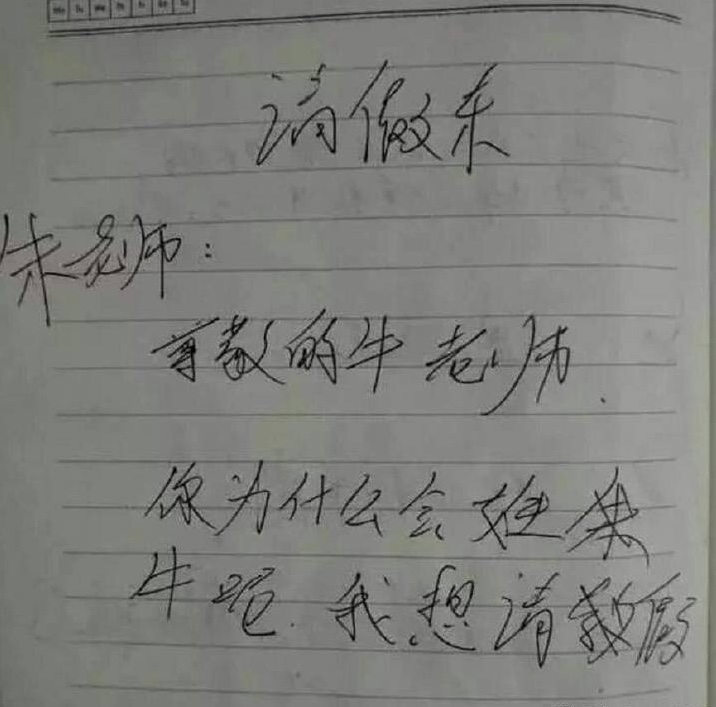 请做条
朱老师：
尊敬的牛老师.
你为什么会姓朱
牛呢.我想请教假